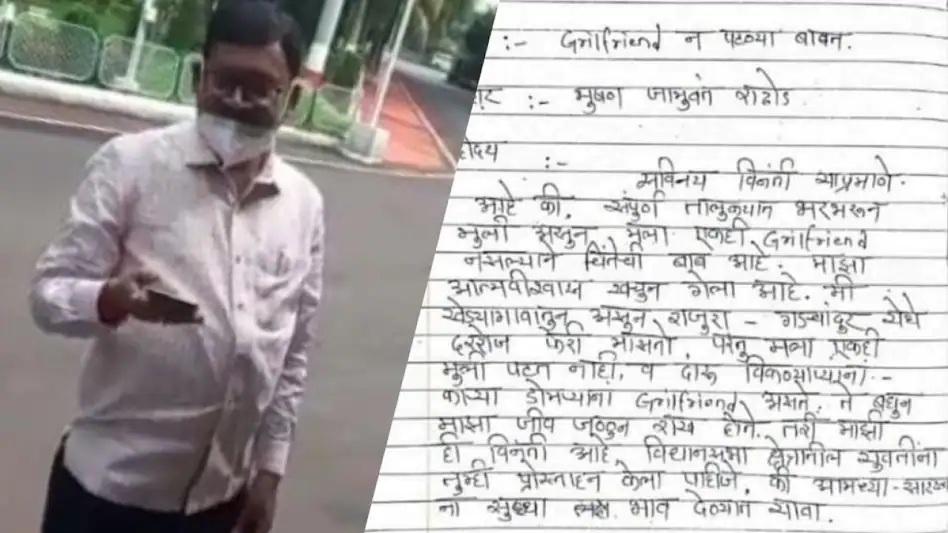 :- Grilfriend न पटण्या बाबत.
:- भुषण जाभुवंत राठोड
होदय :-
सविनय विनंती याप्रमाणे
आहे की, संपुर्ण तालुक्यात भरभरून
मुली असुन, मला एकही Grilfriend
नसल्याने चिंतेची बाब आहे. माझा
आत्मवीस्वास खचुन गेला आहे. मी
खेड्यागावातुन असुन राजुरा - गडचांदुर येथे
दररोज फेरी मारतो, परंतु मला एकही
मुली पटत नाही, व दारू विकण्याप्यांना -
काऱ्या डोमऱ्यांना Grilfriend असते. ते बघुन
माझा जीव जळुन राख होतो. तरी माझी
ही विनंती आहे, विधानसभा क्षेत्रातील युवतींना
तुम्ही प्रोस्ताहन केला पाहीजे, की आमच्या -
ना सुध्दा भाव देण्यात यावा.